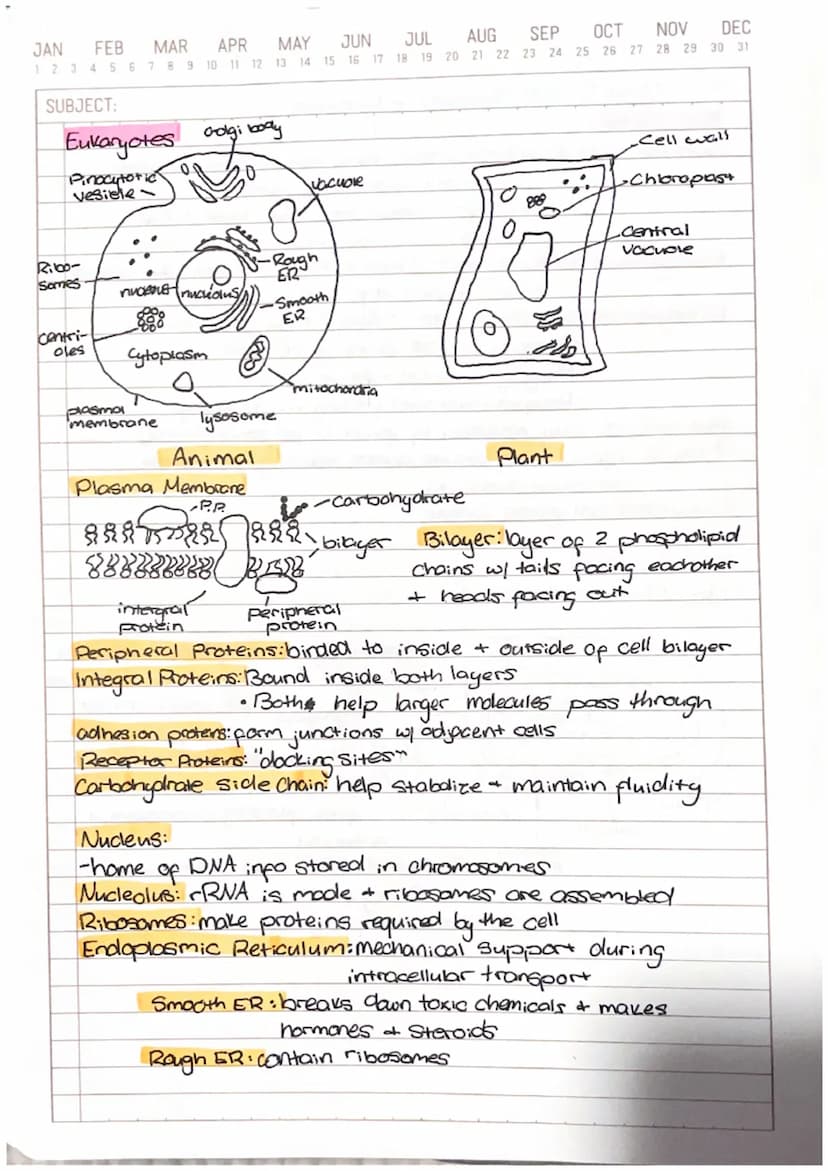 JAN FEB MAR APR MAY JUN JUL AUG SEP OCT NOV DEC
1 2 3 4 5 6 7 8 9 10 11 12 13 14 15 16 17 18 19 20 21 22 23 24 25 26 27 28 29 30 31
SUBJECT:
Eukaryotes
Golgi body
Pinocytotic
vesicle
vacuole
Ribo-
somes
Rough
ER
nucleus
nucleolus
Smooth
ER
centri-
oles
Cytoplasm
mitochondria
plasma
membrane
lysosome
Cell wall
Chloroplast
Central
vacuole
Animal
Plant
Plasma Membrane
P.P.
carbohydrate
bilayer
intergral
protein
peripheral
protein
Bilayer: layer of 2 phospholipid
chains w/ tails facing eachother
+ heads facing out
Peripheral Proteins: binded to inside + outside of cell bilayer
Integral Proteins: Bound inside both layers
• Both help larger molecules pass through
adhesion proteins: form junctions w/ adjacent cells
Receptor Proteins: "docking sites"
Carbohydrate Side Chain: help stabilize + maintain fluidity
Nucleus:
-home of DNA info stored in chromosomes
Nucleolus: rRNA is made + ribosomes are assembled
Ribosomes: make proteins required by the cell
Endoplasmic Reticulum: mechanical support during
intracellular transport
Smooth ER: breaks down toxic chemicals + makes
hormones + steroids
Rough ER: contain ribosomes